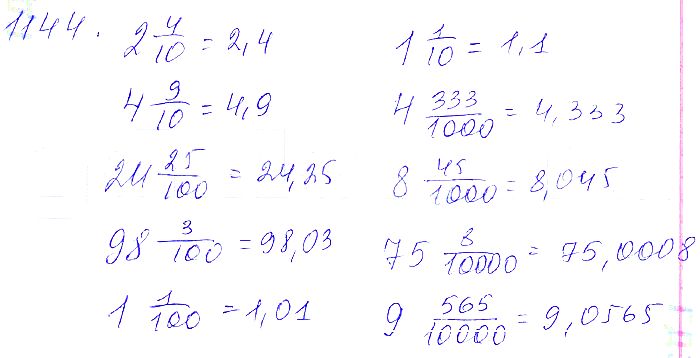 1144.
2 4/10 = 2,4
4 9/10 = 4,9
24 25/100 = 24,25
98 3/100 = 98,03
1 1/100 = 1,01
1 1/10 = 1,1
4 333/1000 = 4,333
8 45/1000 = 8,045
75 8/10000 = 75,0008
9 565/10000 = 9,0565